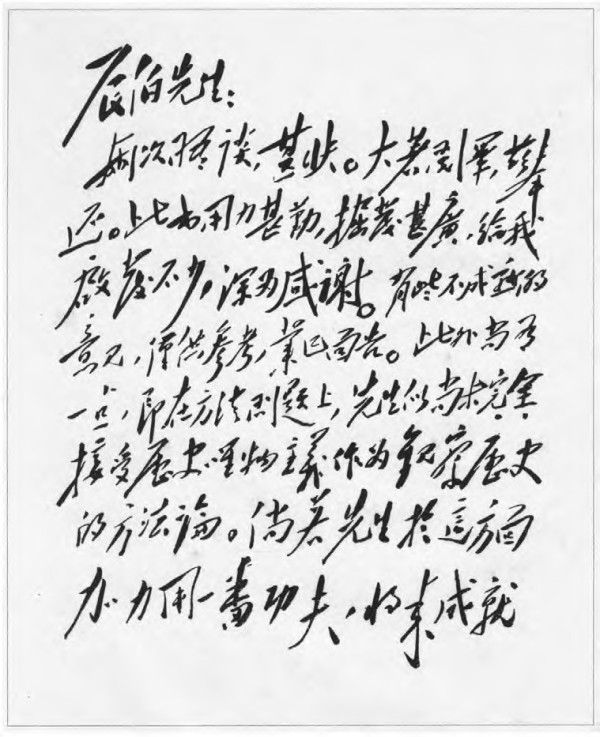 辰伯先生：
兩次晤談，甚快。大著閱畢，兹奉
还。此书用力甚勤，掘發甚廣，給我
啟發不少，深为感謝。有些不成熟的
意见，僅供參考，業已面告。此外尚有
一点，即在方法问题上，先生似尚未完全
接受歷史唯物主義作为觀察歷史
的方法論。倘若先生於這方面
加力用一番功夫，将来成就